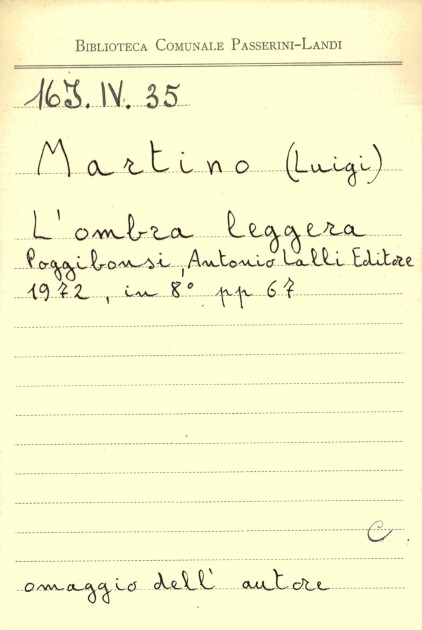 BIBLIOTECA COMUNALE PASSERINI-LANDI
16J. IV. 35
Martino (Luigi)
L'ombra leggera
Poggibonsi, Antonio Lalli Editore
1972, in 8° pp 67
C
omaggio dell' autore